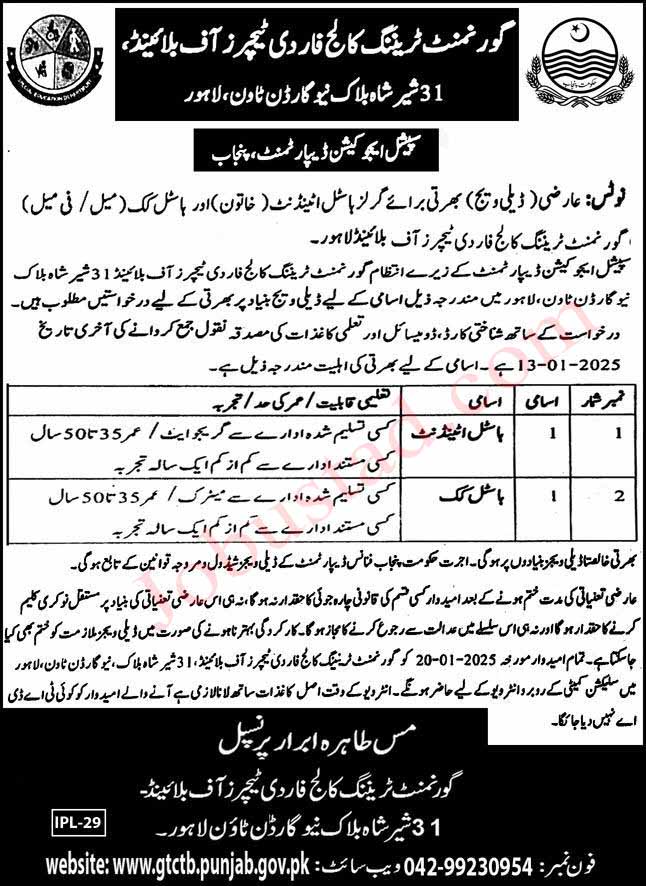 گورنمنٹ ٹریننگ کالج فار دی ٹیچرز آف بلائینڈ،
31 شیر شاہ بلاک نیو گارڈن ٹاون، لاہور
حکومت پنجاب
SPECIAL EDUCATION DEPARTMENT
سپیشل ایجوکیشن ڈیپارٹمنٹ، پنجاب
نوٹس: عارضی (ڈیلی ویج) بھرتی برائے گرلز ہاسٹل اٹینڈنٹ (خاتون) اور ہاسٹل کک (میل / فی میل)
گورنمنٹ ٹریننگ کالج فار دی ٹیچرز آف بلائینڈ لاہور۔
سپیشل ایجوکیشن ڈیپارٹمنٹ کے زیرے انتظام گورنمنٹ ٹریننگ کالج فار دی ٹیچرز آف بلائینڈ 31 شیر شاہ بلاک
نیو گارڈن ٹاون، لاہور میں مندرجہ ذیل اسامی کے لیے ڈیلی ویج بنیاد پر بھرتی کے لیے درخواستیں مطلوب ہیں۔
درخواست کے ساتھ شناختی کارڈ، ڈومیسائل اور تعلمی کاغذات کی مصدقہ نقول جمع کروانے کی آخری تاریخ
13-01-2025 ہے۔ اسامی کے لیے بھرتی کی اہلیت مندرجہ ذیل ہے۔
نمبر شمار اسامی اسامی تعلیمی قابلیت / عمر کی حد / تجربہ
1 1 ہاسٹل اٹینڈنٹ کسی تسلیم شدہ ادارے سے گریجوایٹ / عمر 35 تا 50 سال
کسی مستند ادارے سے کم از کم ایک سالہ تجربہ
2 1 ہاسٹل کک کسی تسلیم شدہ ادارے سے میٹرک / عمر 35 تا 50 سال
کسی مستند ادارے سے کم از کم ایک سالہ تجربہ
بھرتی خالصتا ڈیلی ویجز بنیادوں پر ہوگی۔ اجرت حکومت پنجاب فنانس ڈیپارٹمنٹ کے ڈیلی ویجز شیڈول و مروجہ قوانین کے تابع ہوگی۔
عارضی تعیناتی کی مدت ختم ہونے کے بعد امیدوار کسی قسم کی قانونی چارہ جوئی کا حقدار نہ ہوگا، نہ ہی اس عارضی تعیناتی کی بنیاد پر مستقل نوکری کلیم
کرنے کا حقدار ہوگا اور نہ ہی اس سلسلے میں عدالت سے رجوع کرنے کا مجاز ہوگا۔ کارکردگی بہتر نا ہونے کی صورت میں ڈیلی ویجز ملازمت کو ختم بھی کیا
جاسکتا ہے۔ تمام امیدوار مورخہ 20-01-2025 کو گورنمنٹ ٹریننگ کالج فار دی ٹیچرز آف بلائینڈ، 31 شیر شاہ بلاک، نیو گارڈن ٹاون، لاہور
میں سلیکشن کمیٹی کے روبرو انٹرویو کے لیے حاضر ہونگے۔ انٹرویو کے وقت اصل کاغذات ساتھ لانا لازمی ہے آنے والے امیدوار کو کوئی ٹی اے ڈی
اے نہیں دیا جائے گا۔
مس طاہرہ ابرار پرنسپل
گورنمنٹ ٹریننگ کالج فار دی ٹیچرز آف بلائینڈ۔
31 شیر شاہ بلاک نیو گارڈن ٹاؤن لاہور۔
IPL-29
فون نمبر: 042-99230954 ویب سائٹ: website: www.gtctb.punjab.gov.pk
Jobustad.com